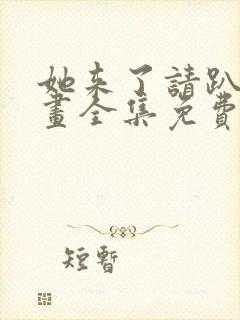 她来了請趴
畫全集免費
短暫